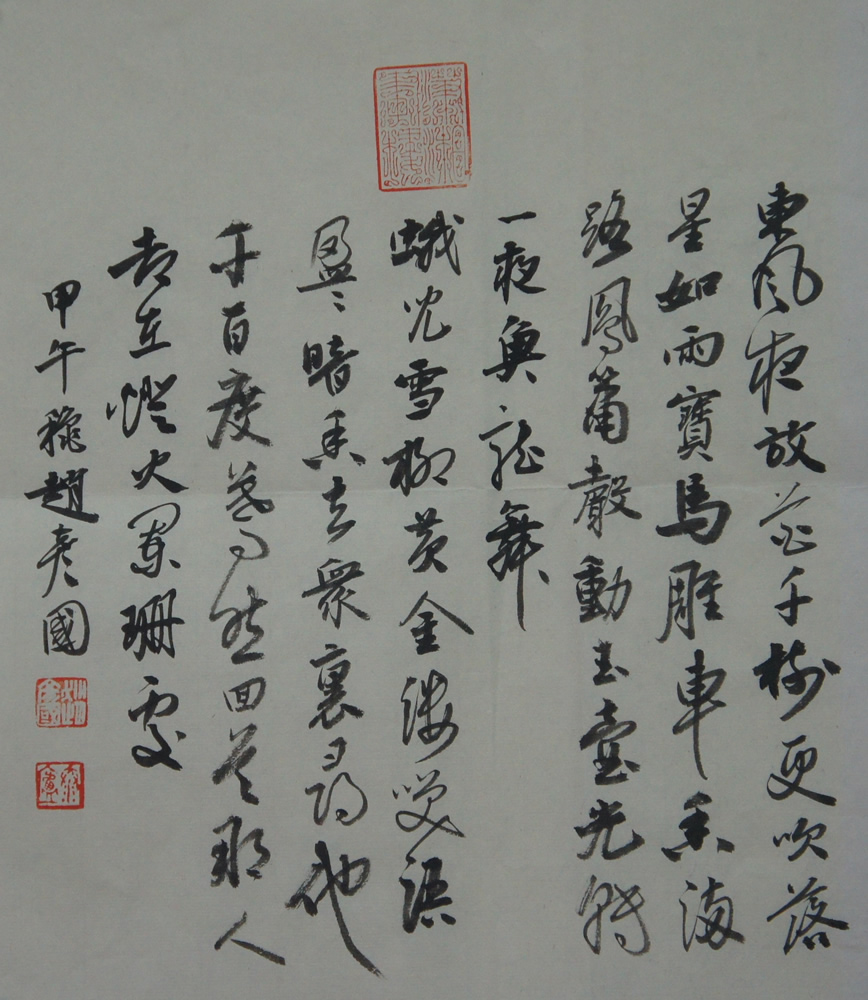 東風夜放花千樹更吹落
星如雨寶馬雕車香滿
路鳳簫聲動玉壺光轉
一夜魚龍舞
蛾兒雪柳黃金縷笑語
盈〻暗香去衆裏尋他
千百度驀然回首那人
却在燈火闌珊處
甲午穐趙彥國